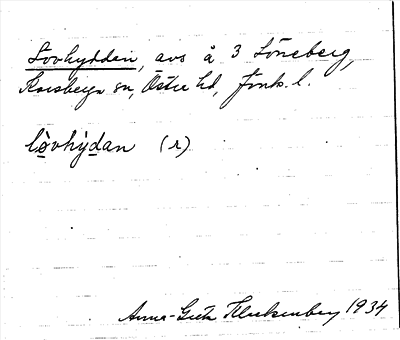 Lövhydden, avs å 3 Löneberg,
Korsberga sn, Östra hd, Jönk. l.
lòvhỳdan (r)
Anna-Greta Fluckenberg 1934